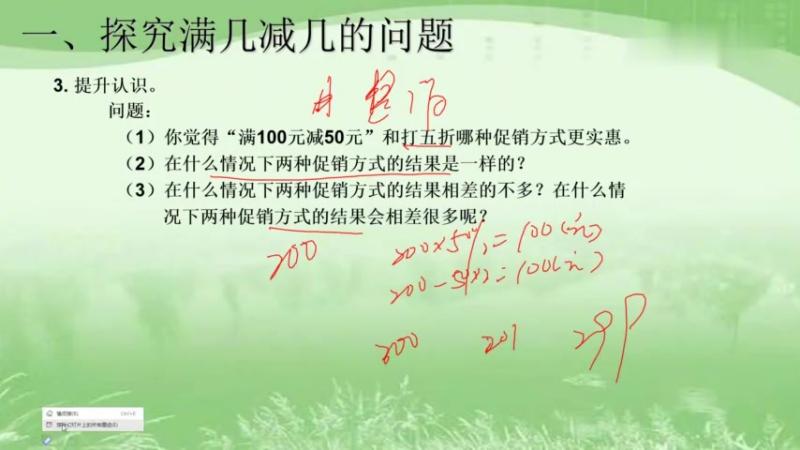 一、探究满几减几的问题
3. 提升认识。
问题：
（1）你觉得“满100元减50元”和打五折哪种促销方式更实惠。
（2）在什么情况下两种促销方式的结果是一样的？
（3）在什么情况下两种促销方式的结果相差的不多？在什么情
况下两种促销方式的结果会相差很多呢？
200
200×50%=100(元)
=100(元)
200 201 299